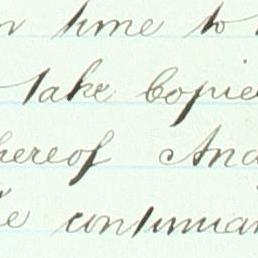 time to
take Copie
hereof And
continuan